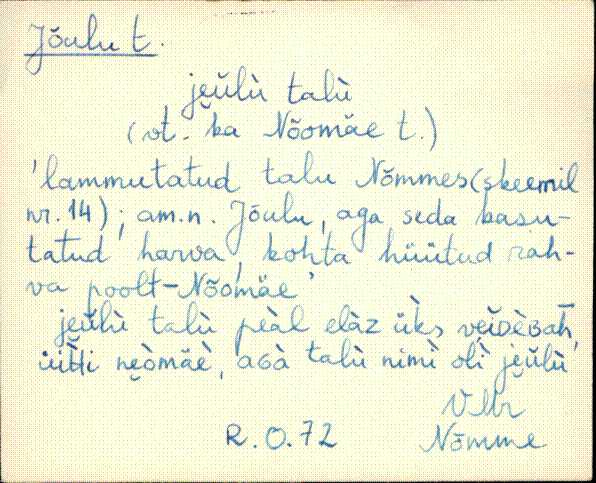 Jõulu t.
jeŭlù talù
(vt. ka Nõomäe t.)
'lammutatud talu Nõmmes (skeemil
nr. 14); am.n. Jõulu, aga seda kasu-
tatud harva, kohta hüütud rah-
va poolt - Nõomäe'
jeŭlù talù peàl elàz üks
neòmäè, aGà talù nimì olì jeŭlù
VMr
R.O.72 Nõmme